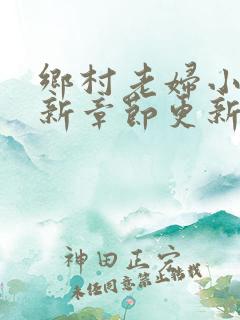 鄉村老婦小
新章節更新
神田正宗
未經同意禁止轉載